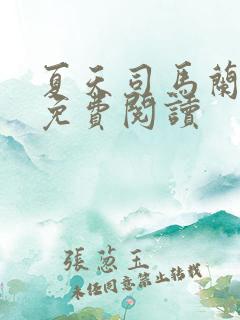 夏天司馬蘭
免費閱讀
張蔥玉
未经同意禁止转载